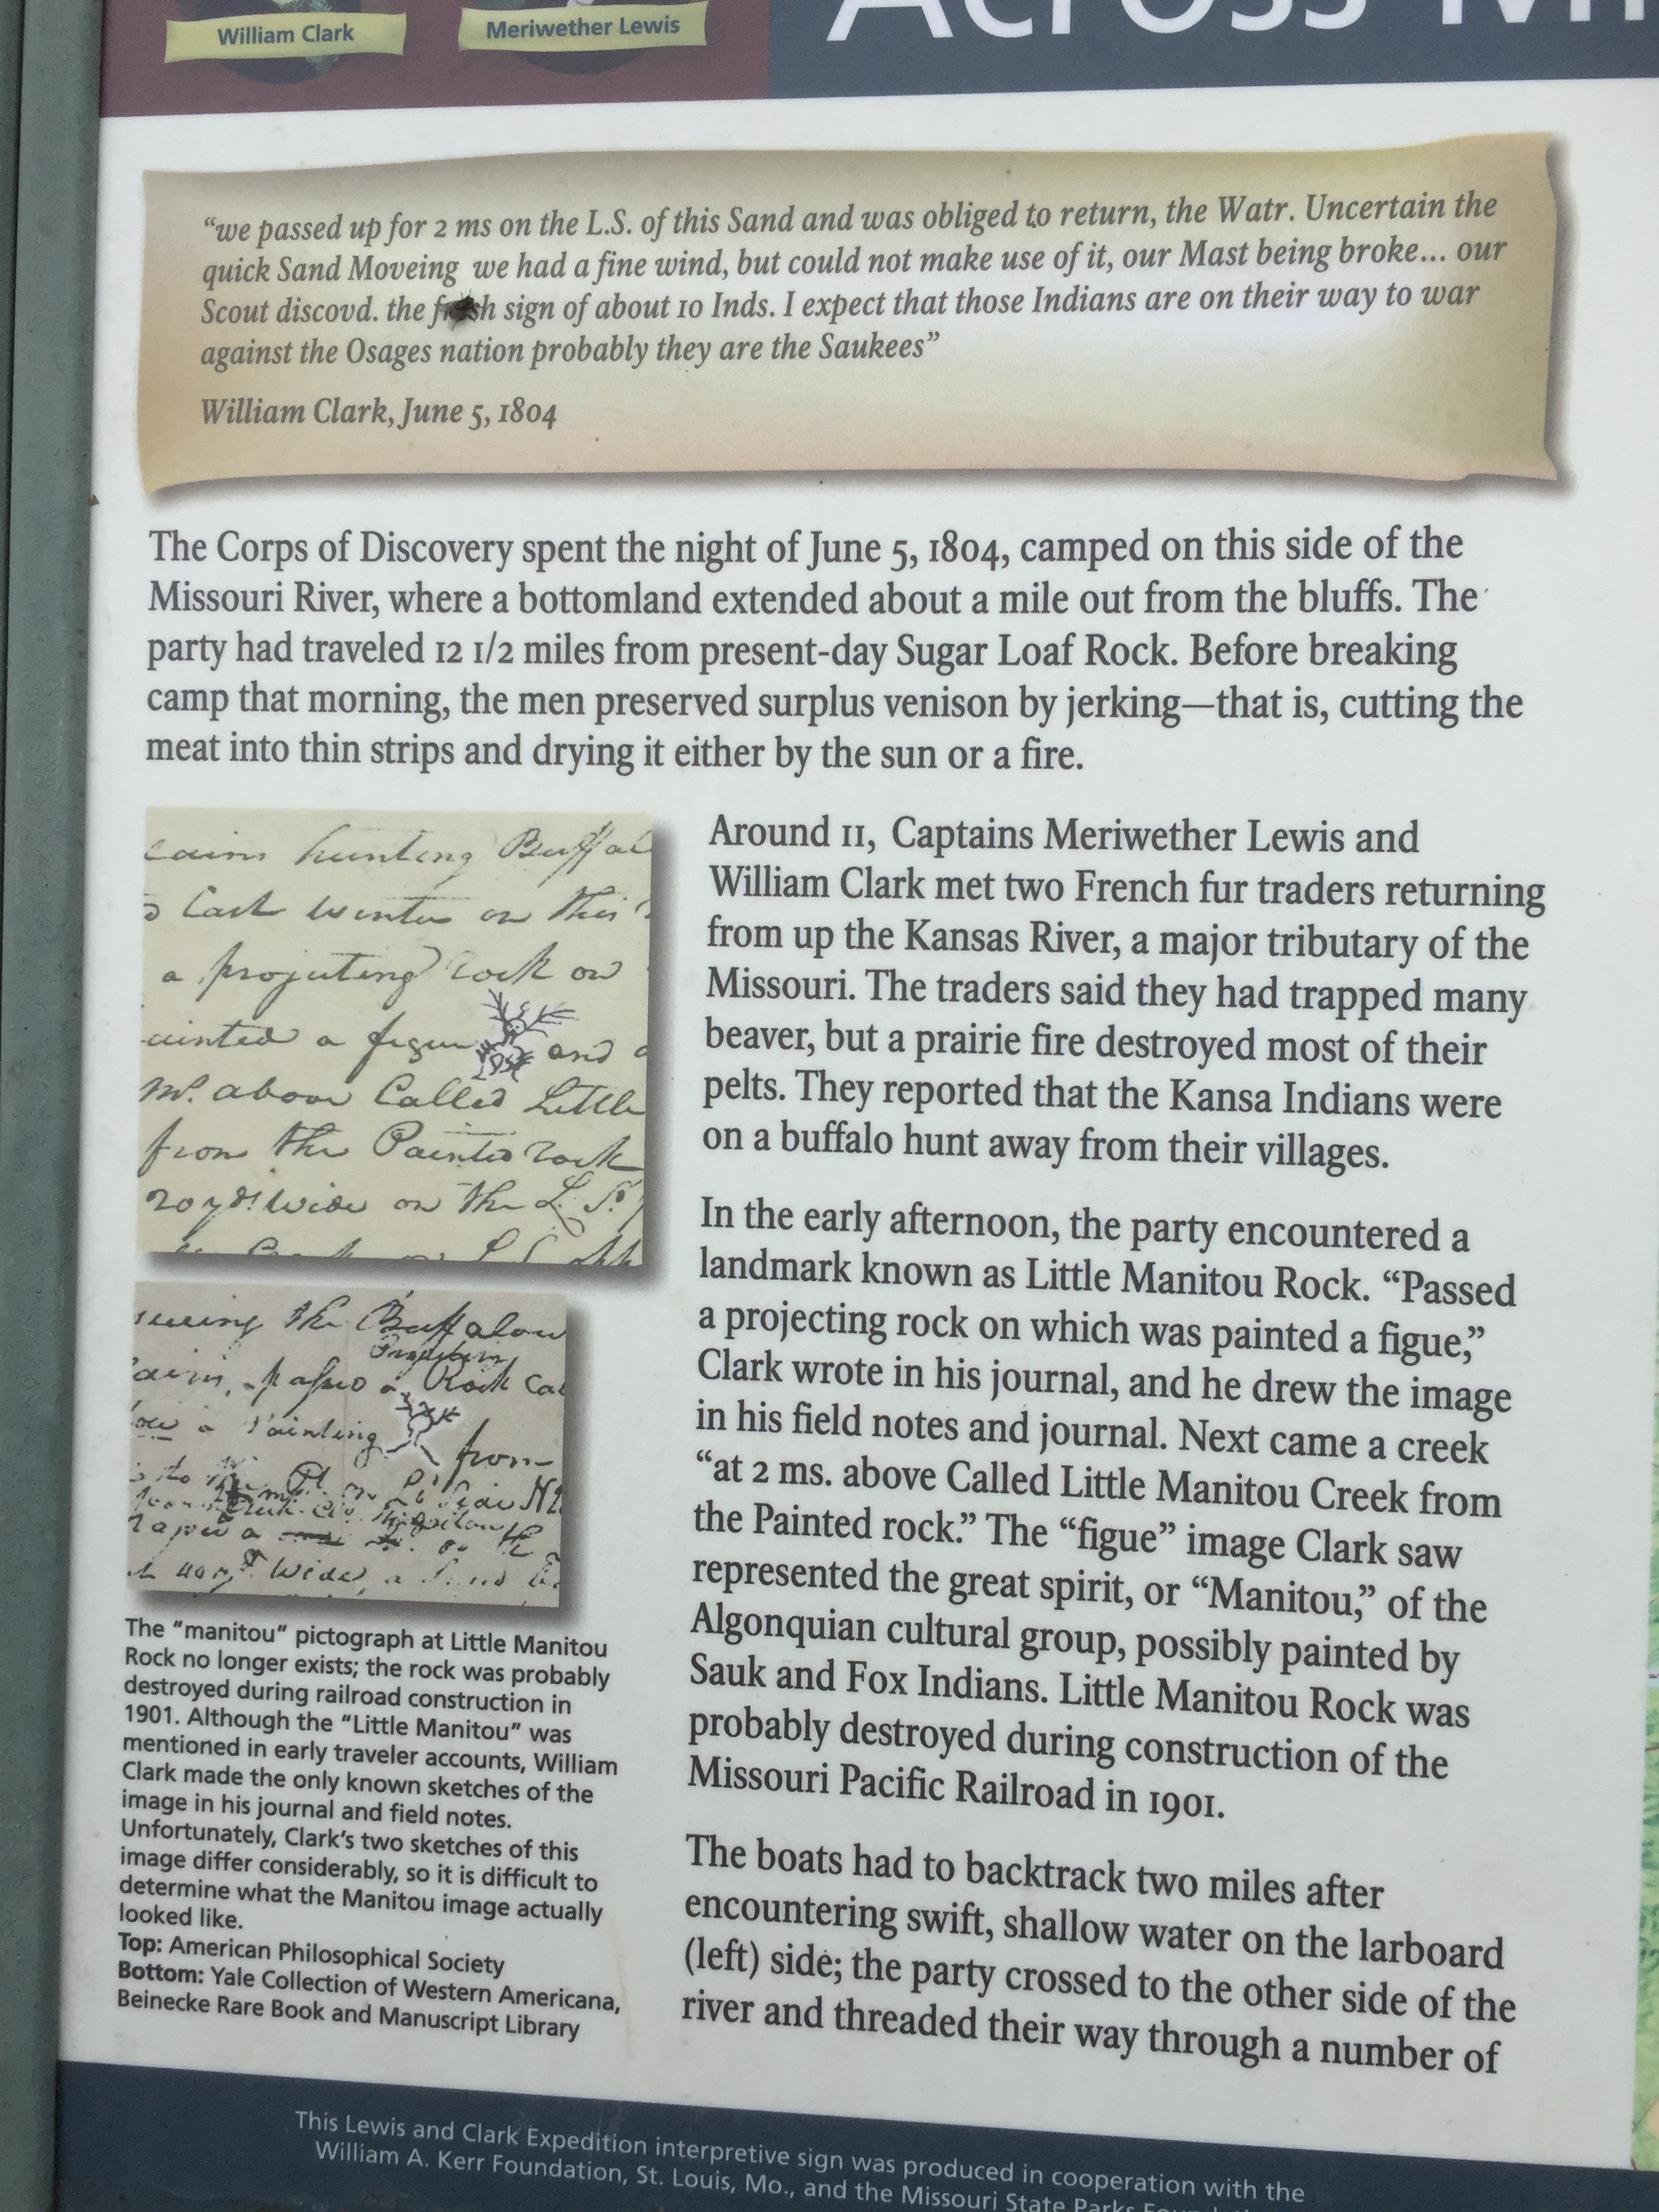 William Clark
Meriwether Lewis
"we passed up for 2 ms on the L.S. of this Sand and was obliged to return, the Watr. Uncertain the
quick Sand Moveing we had a fine wind, but could not make use of it, our Mast being broke... our
Scout discovd. the fresh sign of about 10 Inds. I expect that those Indians are on their way to war
against the Osages nation probably they are the Saukees"
William Clark, June 5, 1804
The Corps of Discovery spent the night of June 5, 1804, camped on this side of the
Missouri River, where a bottomland extended about a mile out from the bluffs. The
party had traveled 12 1/2 miles from present-day Sugar Loaf Rock. Before breaking
camp that morning, the men preserved surplus venison by jerking—that is, cutting the
meat into thin strips and drying it either by the sun or a fire.
hunting Buffal
Last winter on this
a projecting rock on
ainted a figue and
above Called Little
from the Painted rock
20 yds. wide on the L. S.
the Buffalow
a Rock Cal
a Painting from
wide, a
The "manitou" pictograph at Little Manitou
Rock no longer exists; the rock was probably
destroyed during railroad construction in
1901. Although the "Little Manitou" was
mentioned in early traveler accounts, William
Clark made the only known sketches of the
image in his journal and field notes.
Unfortunately, Clark's two sketches of this
image differ considerably, so it is difficult to
determine what the Manitou image actually
looked like.
Top: American Philosophical Society
Bottom: Yale Collection of Western Americana,
Beinecke Rare Book and Manuscript Library
Around 11, Captains Meriwether Lewis and
William Clark met two French fur traders returning
from up the Kansas River, a major tributary of the
Missouri. The traders said they had trapped many
beaver, but a prairie fire destroyed most of their
pelts. They reported that the Kansa Indians were
on a buffalo hunt away from their villages.
In the early afternoon, the party encountered a
landmark known as Little Manitou Rock. "Passed
a projecting rock on which was painted a figue,"
Clark wrote in his journal, and he drew the image
in his field notes and journal. Next came a creek
"at 2 ms. above Called Little Manitou Creek from
the Painted rock." The "figue" image Clark saw
represented the great spirit, or "Manitou," of the
Algonquian cultural group, possibly painted by
Sauk and Fox Indians. Little Manitou Rock was
probably destroyed during construction of the
Missouri Pacific Railroad in 1901.
The boats had to backtrack two miles after
encountering swift, shallow water on the larboard
(left) side; the party crossed to the other side of the
river and threaded their way through a number of
This Lewis and Clark Expedition interpretive sign was produced in cooperation with the
William A. Kerr Foundation, St. Louis, Mo., and the Missouri State Parks